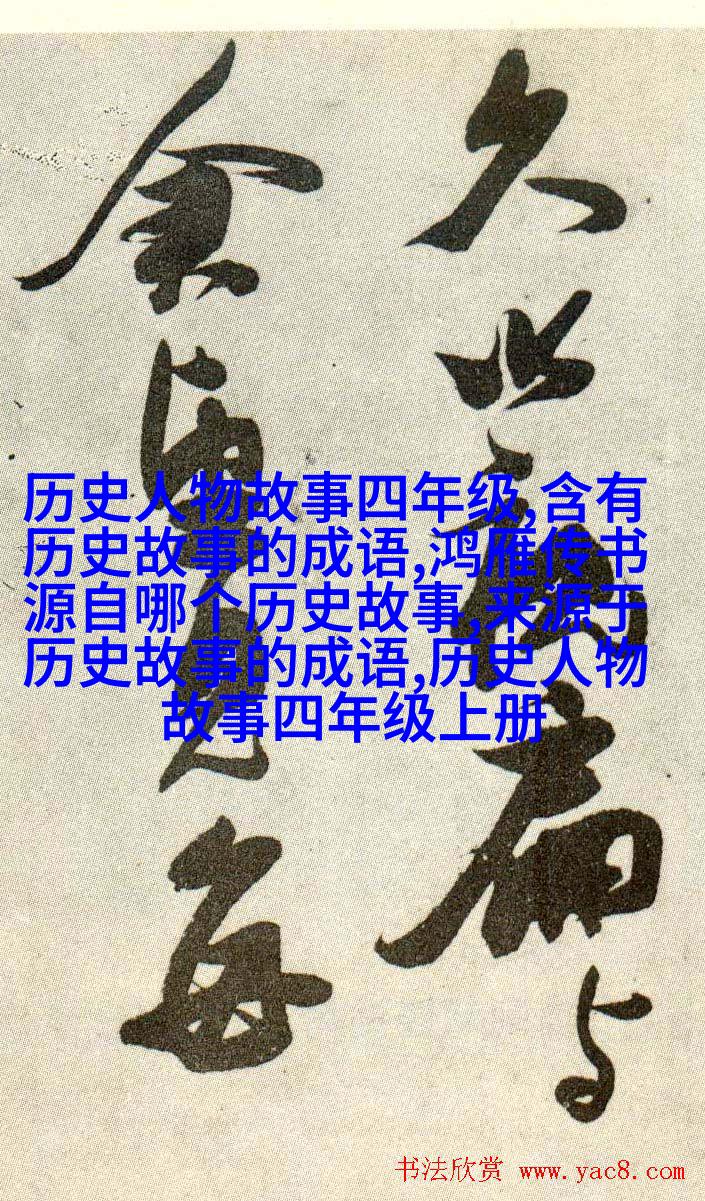 久 与
余 每
历史人物故事四年级,含有
历史故事的成语,鸿雁传书
源自哪个历史故事,来源于
历史故事的成语,历史人物
故事四年级上册
书法欣赏 www.yac8.com